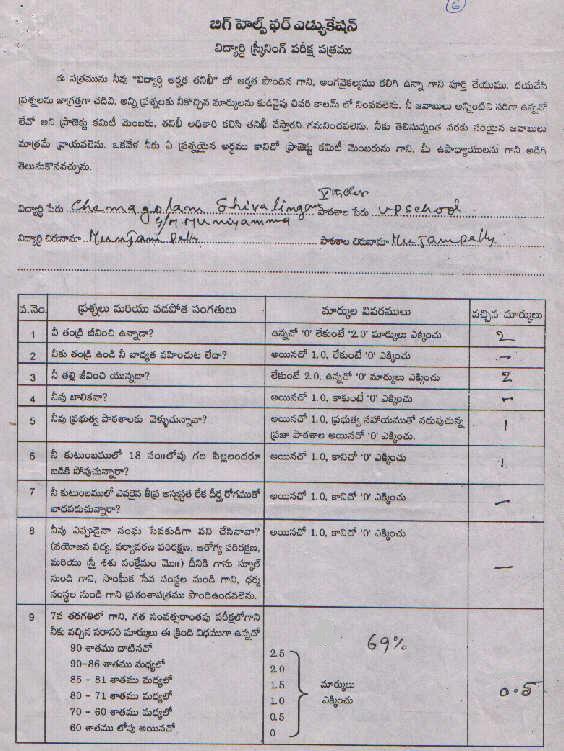 6
బిగ్ హెల్ప్ ఫర్ ఎడ్యుకేషన్
విద్యార్థి స్క్రీనింగ్ పరీక్ష పత్రము
ఈ పత్రమును నీవు "విద్యార్థి అర్హత తనిఖీ" లో అర్హత పొందిన గాని, అంగవైకల్యము కలిగి ఉన్నా గాని పూర్తి చేయుము. దయచేసి
ప్రశ్నలను జాగ్రత్తగా చదివి, అన్ని ప్రశ్నలకు నీకొచ్చిన మార్కులను కుడివైపు చివరి కాలమ్ లో నింపవలెను. నీ జవాబులు అన్నింటిని సరిగా ఉన్నదో
లేదో అని ప్రాజెక్టు కమిటీ మెంబరు, తనిఖీ అధికారి కలిసి తనిఖీ చేస్తారని గమనించవలెను. నీకు తెలిసినంత వరకు సరియైన జవాబులు
మాత్రమే వ్రాయవలెను. ఒకవేళ నీకు ఏ ప్రశ్నయైన అర్థము కానిచో ప్రాజెక్టు కమిటీ మెంబరును గాని, మీ ఉపాధ్యాయులను గాని అడిగి
తెలుసుకొనవచ్చును.
విద్యార్థి పేరు Chemagolam Shivalingam పాఠశాల పేరు U.P School
S/o Muniyamma
విద్యార్థి చిరునామా Munjampally పాఠశాల చిరునామా Munjampally
వ.నెం. ప్రశ్నలు మరియు వడపోత సంగతులు మార్కుల వివరములు వచ్చిన మార్కులు
1 నీ తండ్రి జీవించి ఉన్నాడా? ఉన్నచో '0' లేకుంటే '2.0' మార్కులు ఎక్కించు 2
2 నీకు తండ్రి ఉండి నీ బాధ్యత వహించుట లేదా? అయినచో 1.0, లేకుంటే '0' ఎక్కించు –
3 నీ తల్లి జీవించి యున్నదా? లేకుంటే 2.0, ఉన్నచో '0' మార్కులు ఎక్కించు 2
4 నీవు బాలికవా? అయినచో 1.0, కాకుంటే '0' ఎక్కించు –
5 నీవు ప్రభుత్వ పాఠశాలకు వెళ్ళుచున్నావా? అయినచో 1.0, ప్రభుత్వ సహాయముతో నడుపుచున్న 1
ప్రజా పాఠశాల అయినచో '0' ఎక్కించు.
6 నీ కుటుంబములో 18 సం॥లోపు గల పిల్లలందరూ అయినచో 1.0, కానిచో '0' ఎక్కించు 1
బడికి పోవుచున్నారా?
7 నీ కుటుంబములో ఎవరైన తీవ్ర అస్వస్థత లేక దీర్ఘ రోగముతో అయినచో 1.0, కానిచో '0' ఎక్కించు –
బాధపడుచున్నారా?
8 నీవు ఎప్పుడైనా సంఘ సేవకుడిగా పని చేసినావా? అయినచో 1.0, కానిచో '0' ఎక్కించు –
(వయోజన విద్య, పర్యావరణ పరిరక్షణ, ఆరోగ్య పరిరక్షణ,
మరియు స్త్రీ శిశు సంక్షేమం మొ॥) దీనికి గాను స్కూల్
నుండి గాని, సాంఘిక సేవ సంస్థల నుండి గాని, ధర్మ
సంస్థల నుండి గాని ప్రశంసాపత్రము పొందిఉండవలెను.
9 7వ తరగతిలో గాని, గత సంవత్సరాంతపు పరీక్షలోగాని
నీకు వచ్చిన సరాసరి మార్కులు ఈ క్రింది విధముగా ఉన్నచో 69%
90 శాతము దాటినచో 2.5
90-86 శాతము మధ్యలో 2.0
85 - 81 శాతము మధ్యలో 1.5 మార్కులు 0.5
80 - 71 శాతము మధ్యలో 1.0 ఎక్కించు
70 - 60 శాతము మధ్యలో 0.5
60 శాతము లోపు అయినచో 0